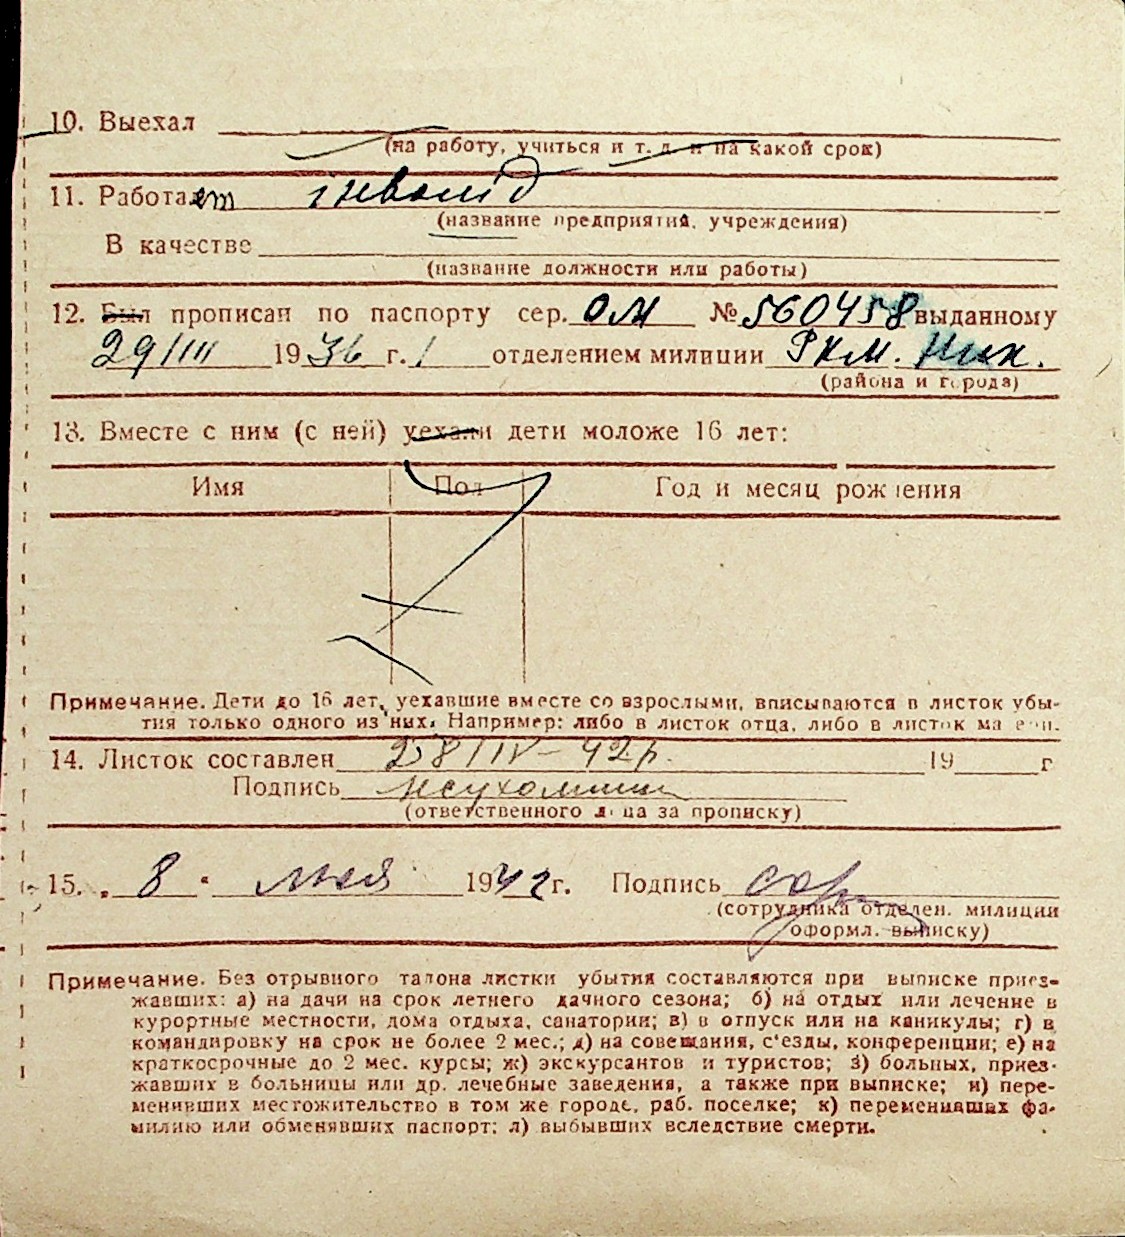 10. Выехал
(на работу, учиться и т. д. и на какой срок)
11. Работает інвалід
(название предприятий, учреждения)
В качестве
(название должности или работы)
12. Был прописан по паспорту сер. ОМ № 560458 выданному
29/III 1936 г. 1 отделением милиции РКМ. Ник.
(района и города)
13. Вместе с ним (с ней) уехали дети моложе 16 лет:
Имя Пол Год и месяц рождения
Примечание. Дети до 16 лет, уехавшие вместе со взрослыми, вписываются в листок убы-
тия только одного из них. Например: либо в листок отца, либо в листок матери.
14. Листок составлен 28/IV-42р. 19 г
Подпись
(ответственного лица за прописку)
15. „ 8 “ мая 1942 г. Подпись
(сотрудника отделен. милиции
оформл. выписку)
Примечание. Без отрывного талона листки убытия составляются при выписке приез-
жавших: а) на дачи на срок летнего дачного сезона; б) на отдых или лечение в
курортные местности, дома отдыха, санатории; в) в отпуск или на каникулы; г) в
командировку на срок не более 2 мес.; д) на совещания, с'езды, конференции; е) на
краткосрочные до 2 мес. курсы; ж) экскурсантов и туристов; з) больных, приез-
жавших в больницы или др. лечебные заведения, а также при выписке; и) пере-
менивших местожительство в том же городе, раб. поселке; к) переменивших фа-
милию или обменявших паспорт; л) выбывших вследствие смерти.